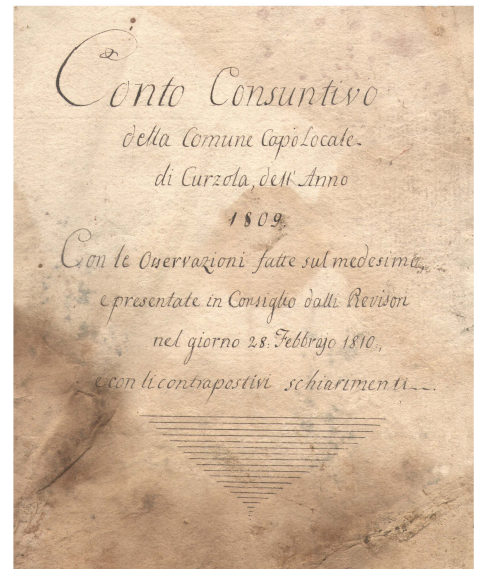 Conto Consuntivo
della Comune Capo Locale
di Curzola, dell' Anno
1809.
Con le Osservazioni fatte sul medesimo,
e presentate in Consiglio dalli Revisori
nel giorno 28: Febbrajo 1810.,
e con li contrapostivi schiarimenti